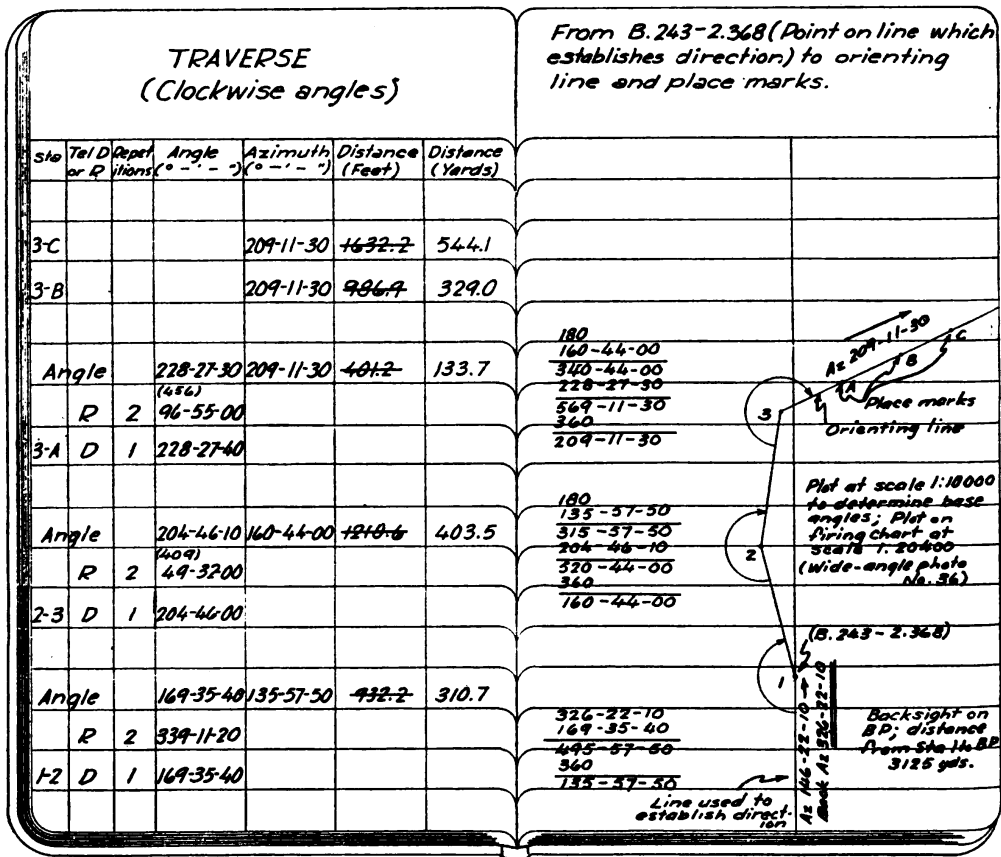 TRAVERSE
(Clockwise angles)
Sta Tel D or R Repetitions Angle (° – ' – ") Azimuth (° – ' – ") Distance (Feet) Distance (Yards)
3-C 209-11-30 1632.2 544.1
3-B 209-11-30 986.9 329.0
Angle 228-27-30 209-11-30 401.2 133.7
(456)
R 2 96-55-00
3-A D 1 228-27-40
Angle 204-46-10 160-44-00 1210.6 403.5
(409)
R 2 49-32-00
2-3 D 1 204-46-00
Angle 169-35-40 135-57-50 932.2 310.7
R 2 339-11-20
1-2 D 1 169-35-40
From B.243-2.368 (Point on line which
establishes direction) to orienting
line and place marks.
180
160-44-00
340-44-00
228-27-30
569-11-30
360
209-11-30
Az 209-11-30
C
B
A
Place marks
Orienting line
3
180
135-57-50
315-57-50
204-46-10
520-44-00
360
160-44-00
2
Plot at scale 1:10000
to determine base
angles; Plot on
firing chart at
scale 1:20400
(Wide-angle photo
No. 36)
(B.243-2.368)
1
326-22-10
169-35-40
495-57-50
360
135-57-50
Az 146-22-10
Back Az 326-22-10
Backsight on
BP; distance
from Sta 1 to BP
3125 yds.
Line used to
establish direct-
ion